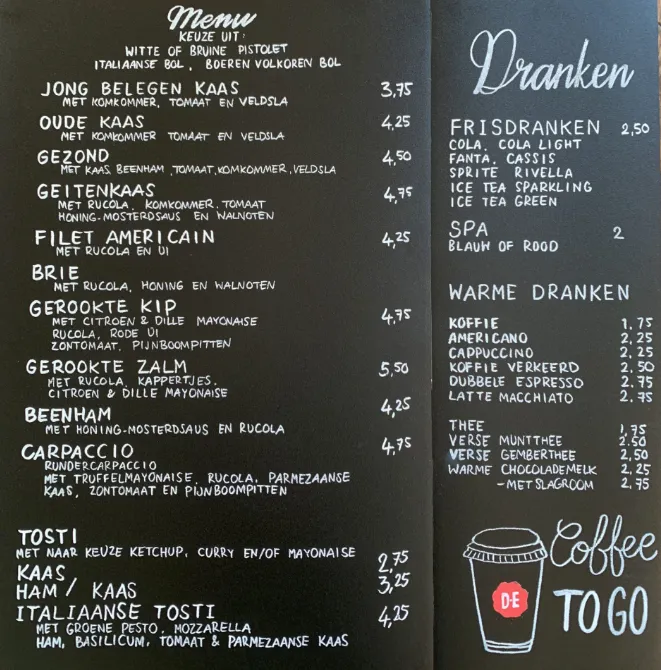 Menu
KEUZE UIT:
WITTE OF BRUINE PISTOLET
ITALIAANSE BOL, BOEREN VOLKOREN BOL
JONG BELEGEN KAAS 3,75
MET KOMKOMMER, TOMAAT EN VELDSLA
OUDE KAAS 4,25
MET KOMKOMMER TOMAAT EN VELDSLA
GEZOND 4,50
MET KAAS, BEENHAM, TOMAAT, KOMKOMMER, VELDSLA
GEITENKAAS 4,75
MET RUCOLA, KOMKOMMER, TOMAAT
HONING-MOSTERDSAUS EN WALNOTEN
FILET AMERICAIN 4,25
MET RUCOLA EN UI
BRIE
MET RUCOLA, HONING EN WALNOTEN
GEROOKTE KIP 4,75
MET CITROEN & DILLE MAYONAISE
RUCOLA, RODE UI
ZONTOMAAT, PIJNBOOMPITTEN
GEROOKTE ZALM 5,50
MET RUCOLA, KAPPERTJES,
CITROEN & DILLE MAYONAISE
BEENHAM 4,25
MET HONING-MOSTERDSAUS EN RUCOLA
CARPACCIO 4,75
RUNDERCARPACCIO
MET TRUFFELMAYONAISE, RUCOLA, PARMEZAANSE
KAAS, ZONTOMAAT EN PIJNBOOMPITTEN
TOSTI
MET NAAR KEUZE KETCHUP, CURRY EN/OF MAYONAISE
KAAS 2,75
HAM / KAAS 3,25
ITALIAANSE TOSTI 4,25
MET GROENE PESTO, MOZZARELLA
HAM, BASILICUM, TOMAAT & PARMEZAANSE KAAS
Dranken
FRISDRANKEN 2,50
COLA, COLA LIGHT
FANTA, CASSIS
SPRITE RIVELLA
ICE TEA SPARKLING
ICE TEA GREEN
SPA 2
BLAUW OF ROOD
WARME DRANKEN
KOFFIE 1,75
AMERICANO 2,25
CAPPUCCINO 2,25
KOFFIE VERKEERD 2,50
DUBBELE ESPRESSO 2,75
LATTE MACCHIATO 2,75
THEE 1,75
VERSE MUNTTHEE 2,50
VERSE GEMBERTHEE 2,50
WARME CHOCOLADEMELK 2,25
-MET SLAGROOM 2,75
Coffee
TO GO
D·E